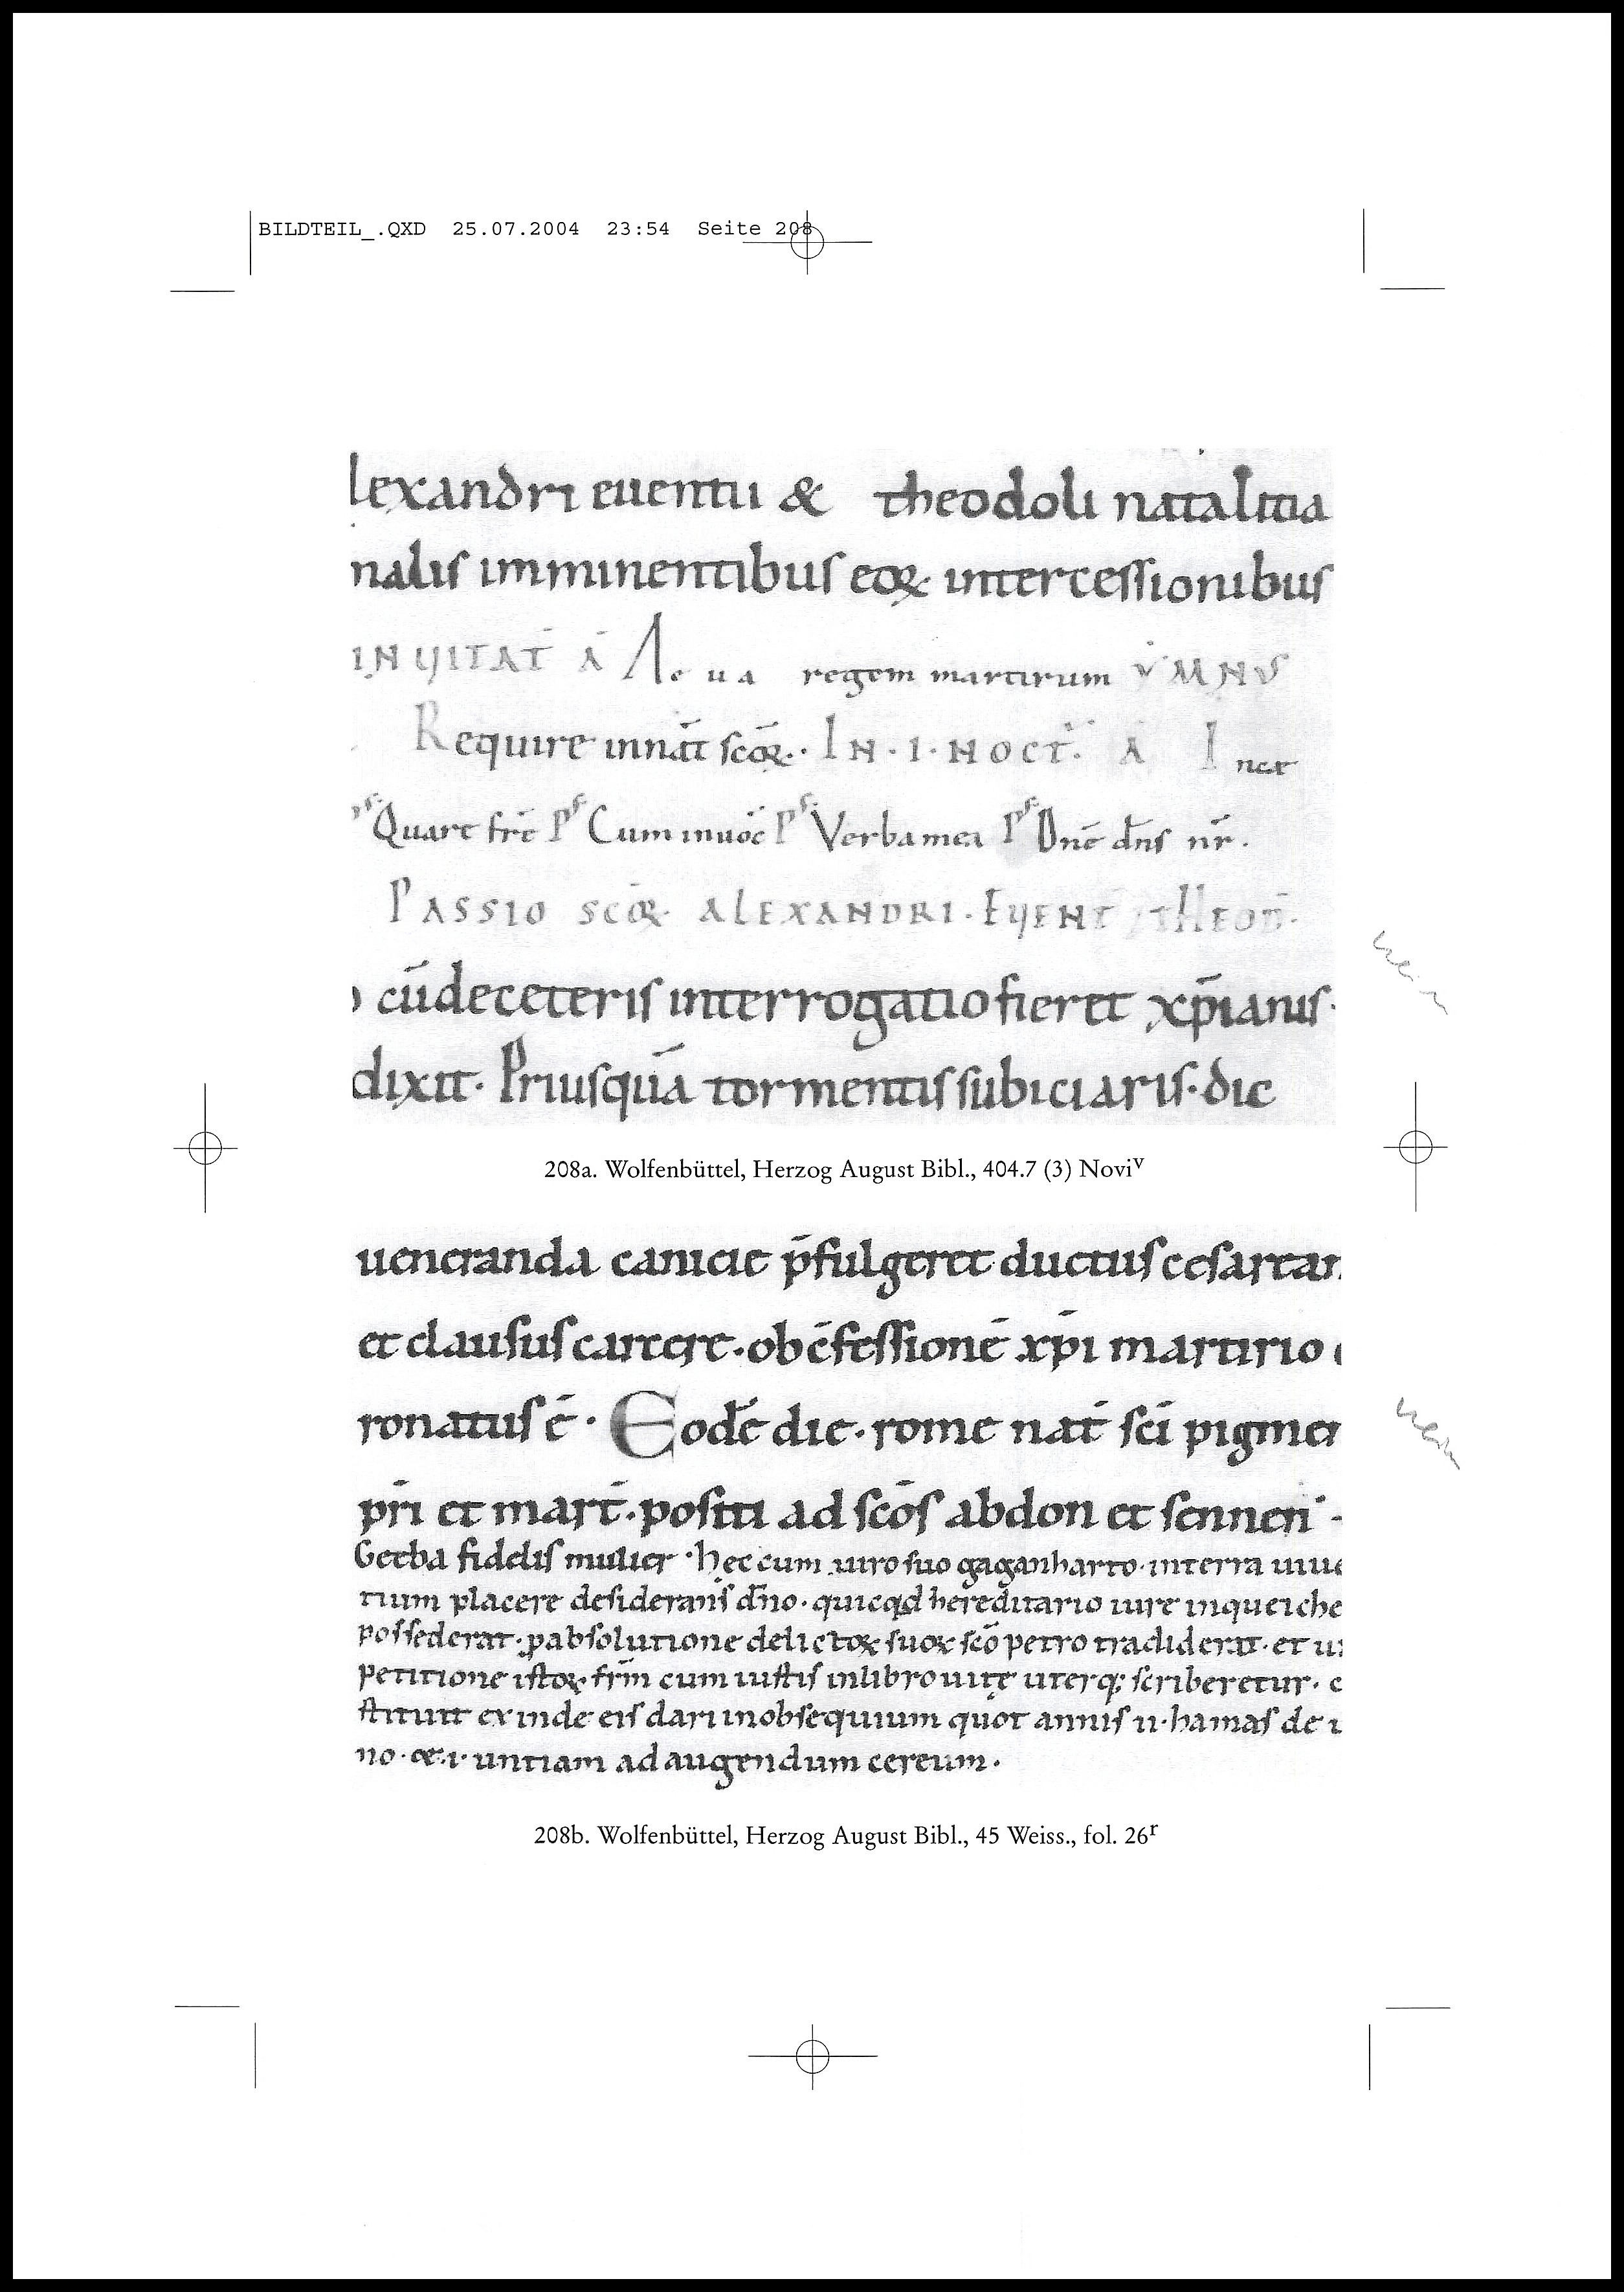 BILDTEIL_.QXD 25.07.2004 23:54 Seite 208
lexandri euentii & theodoli natalitia
nalis imminentibus eoꝝ intercessionibus
INVITAT̄ Ā Ae u a regem martirum YMNVS
Require in nat̄ scōꝝ. IN · I · NOCT̄. Ā I
Quare fr̄e Ps̄ Cum inuoc̄ Ps̄ Verba mea Ps̄ Dn̄e dn̄s nr̄.
PASSIO SCŌꝝ ALEXANDRI. EVENT THEOD̄.
cū de ceteris interrogatio fieret xp̄ianis.
dixit. Priusquā tormentis subiciaris. dic
208a. Wolfenbüttel, Herzog August Bibl., 404.7 (3) Noviᵛ
ueneranda canicie p̄fulgeret ductus cesarean
et clausus carcere. ob c̄fessionē xp̄i martirio
ronatus ē. Eodē die. rome nat̄ sc̄i pigmen
pr̄i et mart̄. positi ad sc̄os abdon et sennen
Gerba fidelis mulier. hęc cum uiro suo gaganharto. in terra uiue
tium placere desiderans dn̄o. quicqd hereditario iure in queiche
possederat. p absolutione delictoꝝ suoꝝ sc̄o petro tradiderat. et u
petitione istoꝝ fr̄m cum iustis in libro uitę uterq; scriberetur.
stituit exinde eis dari in obsequium quot annis ii. hamas de
no. et. i. untiam ad augendum cereum.
208b. Wolfenbüttel, Herzog August Bibl., 45 Weiss., fol. 26ʳ